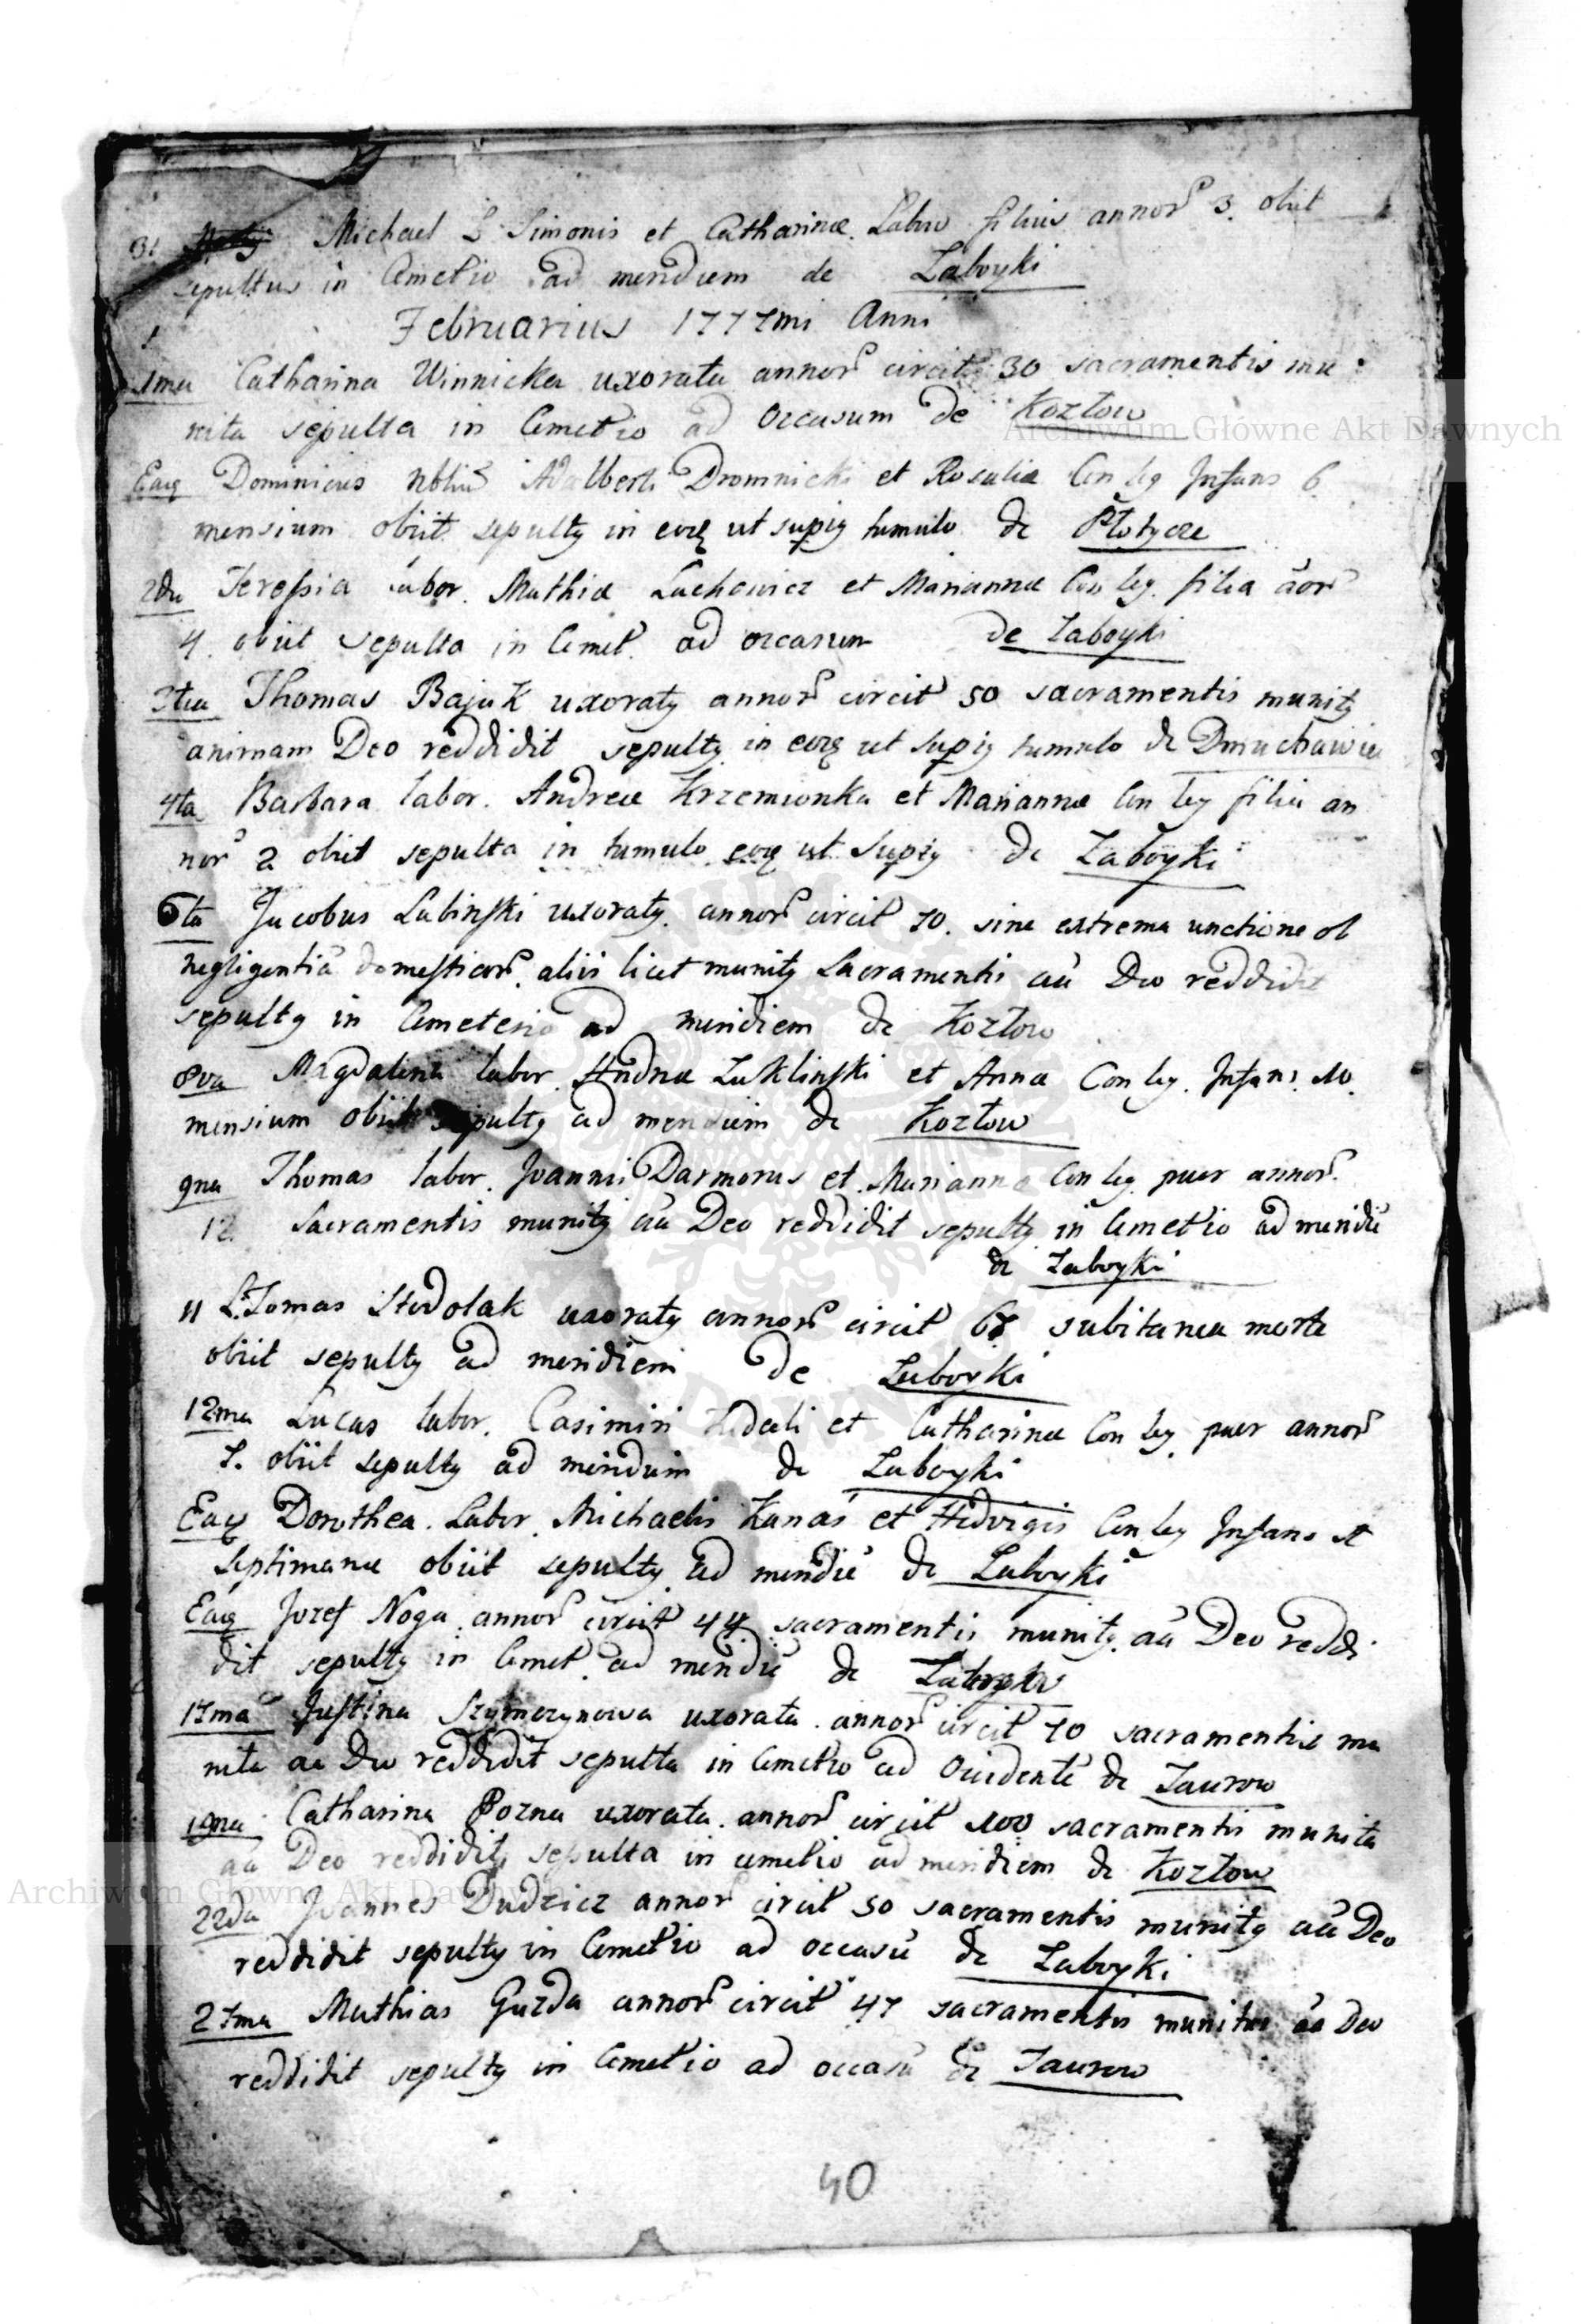 31 Michael L Simonis et Catharinæ Labor filius annor 3. obiit
sepultus in Cmetrio ad meridiem de Zaboyki
Februarius 1777mi Anni
1ma Catharina Winnicka uxorata annor circit 30 sacramentis mu
nita sepulta in Cmetrio ad occasum de Kozłow
Archiwum Główne Akt Dawnych
Eaq Dominicus Nbliu Adalberti Dromnicki et Rosaliæ Con leg Infans 6
mensium obiit sepultq in eoq ut supiq tumulo de Płotycze
2da Teressia labor. Mathiæ Lachowicz et Mariannæ Con leg. filia aor
4. obiit sepulta in Cmet. ad occasum de Zaboyki
3tia Thomas Bajuk uxoratq annor circit 50 sacramentis munitq
animam Deo reddidit sepultq in eoq ut supiq tumulo de Dmuchawiec
4ta Barbara labor. Andreæ Krzemionka et Mariannæ Con leg filia an
nor 2 obiit sepulta in tumulo eoq ut supiq de Zaboyki
6ta Jacobus Lubinski uxoratq. annor circit 70. sine extrema unctione ob
negligentiā domesticor. aliis licet munitq Sacramentis aā Deo reddidit
sepultq in Cmeterio ad meridiem de Kozłow
8va Magdalena labor. Andreæ Zuklinski et Anna Con leg. Infans. 10.
mensium obiit sepultq ad meridiem de Kozłow
9na Thomas labor. Joannis Darmoras et Marianna Con leg. puer annor.
12. Sacramentis munitq aā Deo reddidit sepultq in Cmetrio ad meridiē
de Zaboyki
11 L. Tomas Stodolak uxoratq annor circit 67 subitanea morte
obiit sepultq ad meridiem de Zaboyki
12ma Lucas labor. Casimiri et Catharinæ Con leg. puer annor
7. obiit sepultq ad meridiem de Zaboyki
Eaq Dorothea Labor. Michaelis Kanas et Hedvigis Con leg Infans
septimanæ obiit sepultq ad meridiē de Zaboyki
Eaq Jozef Noga annor circit 44 sacramentis munitq. aā Deo reddi
dit sepultq in Cmet. ad meridiē de Zaboyki
17ma Justina Szymczynowa uxorata annor circit 70 sacramentis mu
nita aa Deo reddidit sepulta in Cmetrio ad Occidentē de Jaurow
19na Catharina Pozna uxorata annor circit 100 sacramentis munita
aā Deo reddidit sepulta in cmetrio ad meridiem de Kozłow
Archiwum Główne Akt Dawnych
22da Joannes Dudzicz annor circit 50 sacramentis munitq aā Deo
reddidit sepultq in Cmetrio ad occasū de Zaboyki
27ma Mathias Guzda annor circit 47 sacramentis munitus aā Deo
reddidit sepultq in Cmetrio ad occasū de Jaurow
40